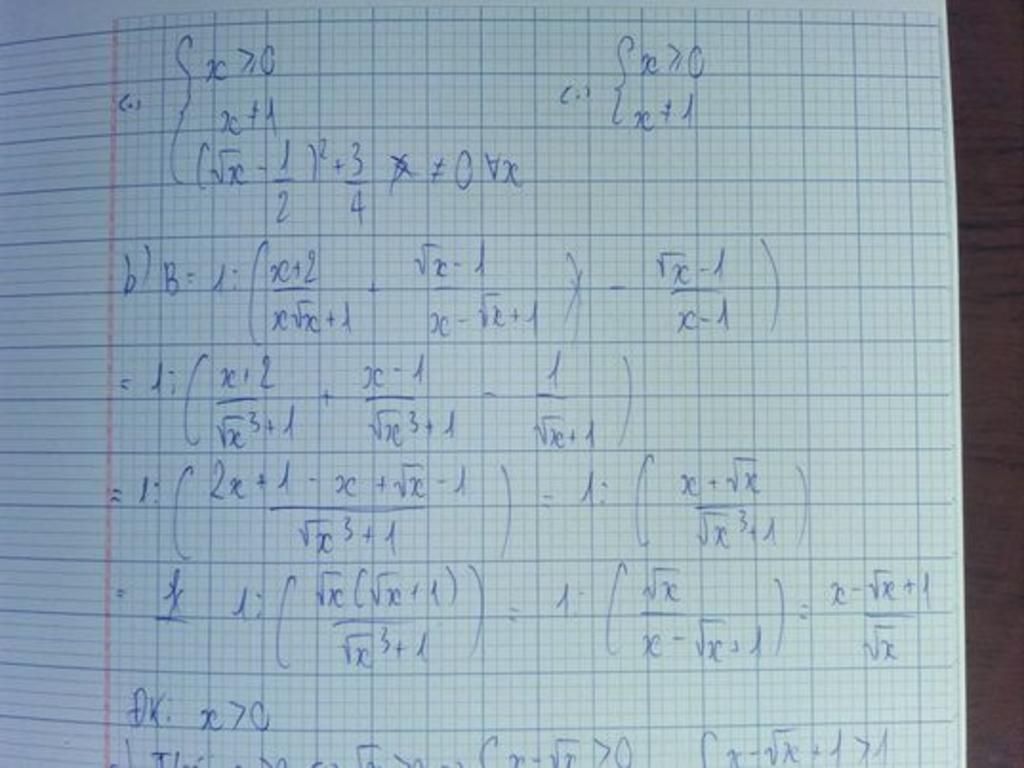 { x ≥ 0
(.) x ≠ 1
(√x - 1/2)² + 3/4 ≠ 0 ∀x
(.) { x ≥ 0
x ≠ 1
b) B = 1 : ( (x+2)/(x√x+1) + (√x-1)/(x-√x+1) ) - (√x-1)/(x-1) )
= 1 : ( (x+2)/(√x³+1) + (x-1)/(√x³+1) - 1/(√x+1) )
= 1 : ( (2x+1-x+√x-1)/(√x³+1) ) = 1 : ( (x+√x)/(√x³+1) )
= 1 : ( √x(√x+1)/(√x³+1) ) = 1 : ( √x/(x-√x+1) ) = (x-√x+1)/√x
ĐK: x > 0
√x > 0 { x-√x > 0 { x-√x+1 > 1